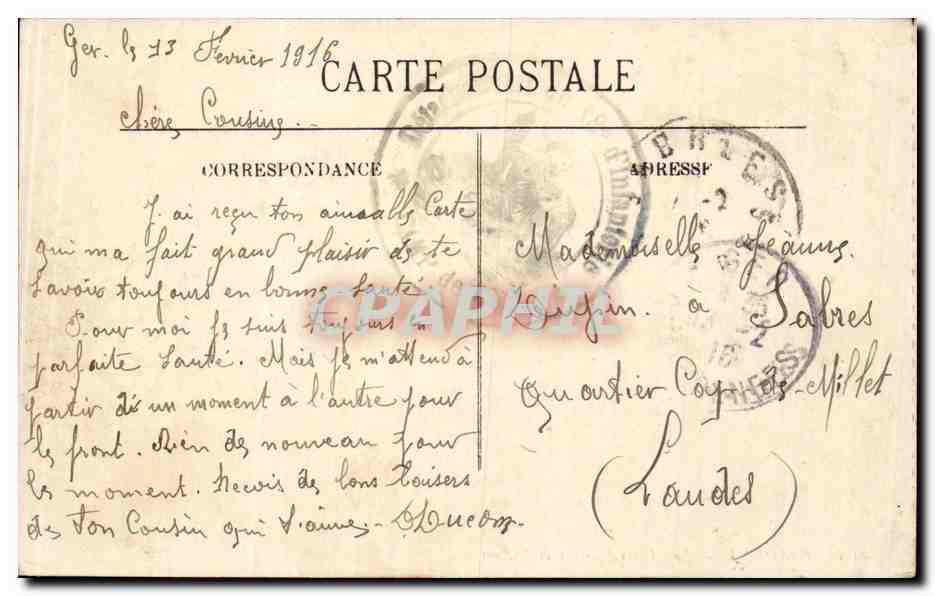 Ger. le 13 Fevrier 1916
CARTE POSTALE
chère Cousine.
CORRESPONDANCE
J'ai reçu ton aimable Carte
qui ma fait grand plaisir de te
savoir toujours en bonne santé.
Pour moi je suis toujours en
parfaite santé. Mais je m'attend à
partir de un moment à l'autre pour
le front. Rien de nouveau pour
le moment. Recois de bons baisers
de ton Cousin qui t'aime
ADRESSE
Mademoiselle Jeanne
Dupin. à Sabres
Quartier Cap de Millet
(Landes)
d'Infanterie
CPAPHIL